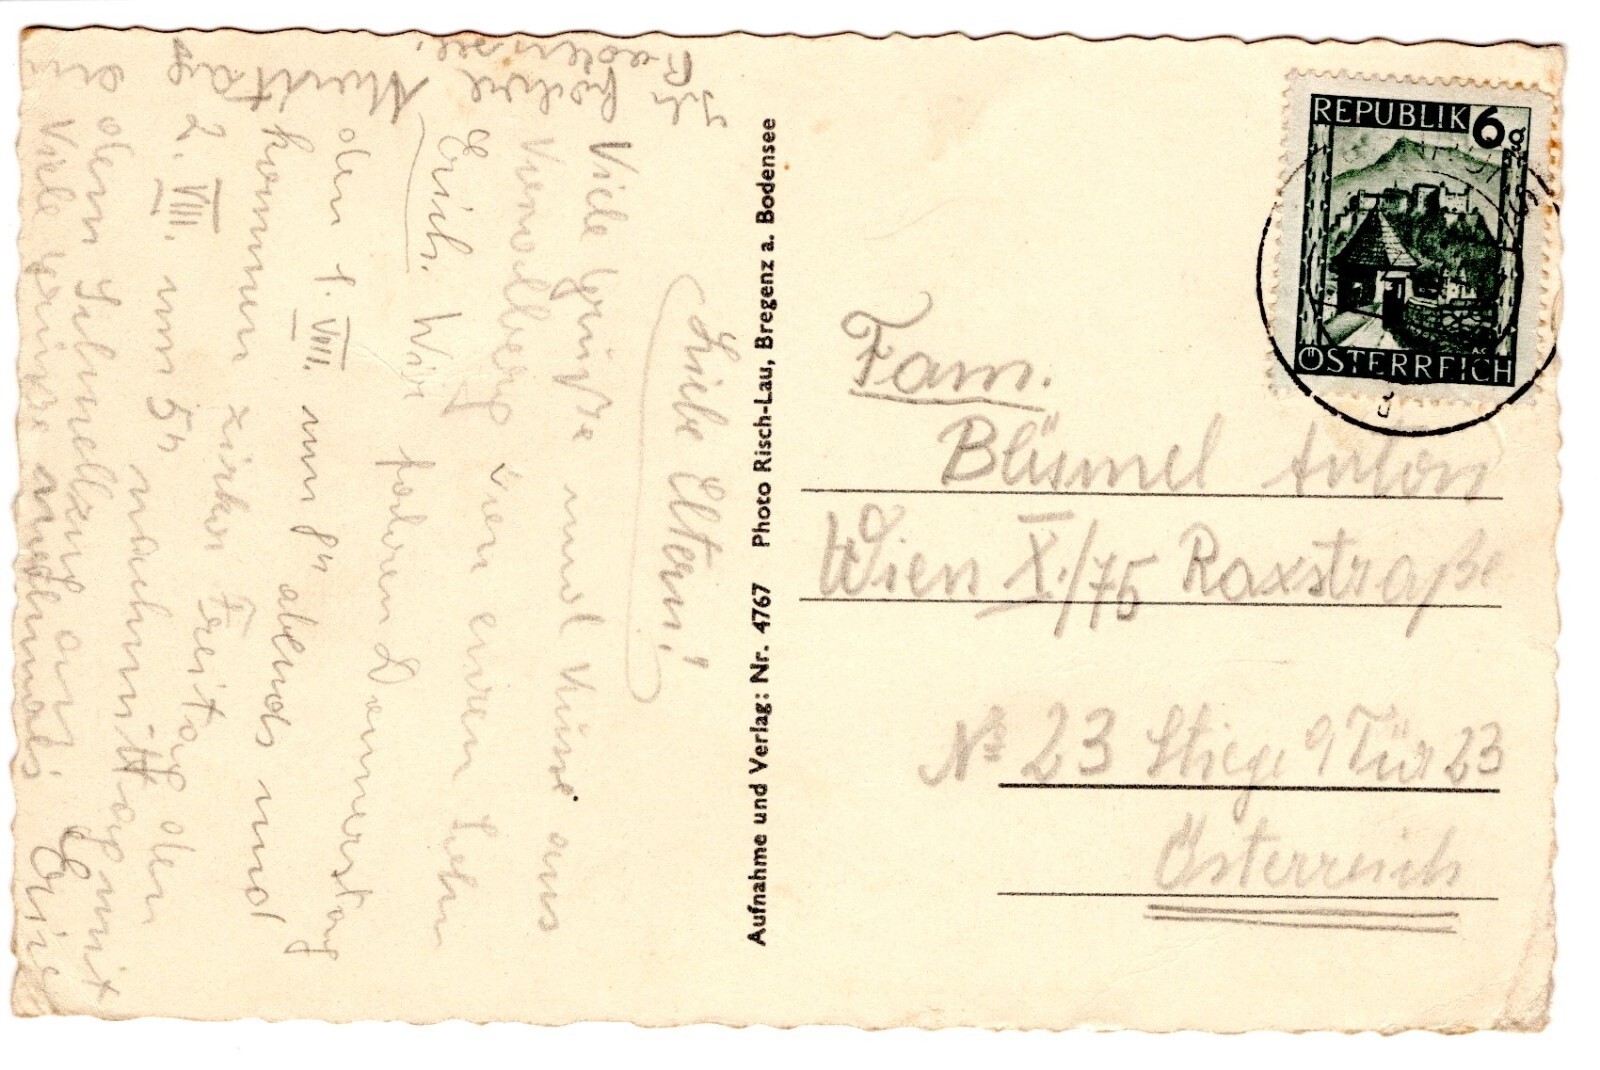 Liebe Eltern!
Viele Grüße und Küsse aus
Vorarlberg von euren Sohn
Erich. Wir fahren Donnerstag
den 1. VIII. um 8ʰ abends und
kommen zirka Freitag den
2. VIII. um 5ʰ nachmittag mit
dem Schnellzug an.
Viele Grüße nochmals Erich
Aufnahme und Verlag: Nr. 4767 Photo Risch-Lau, Bregenz a. Bodensee
REPUBLIK 6g
ÖSTERREICH
Fam.
Blümel Anton
Wien X./75 Raxstraße
№ 23 Stiege 9 Tür 23
Österreich